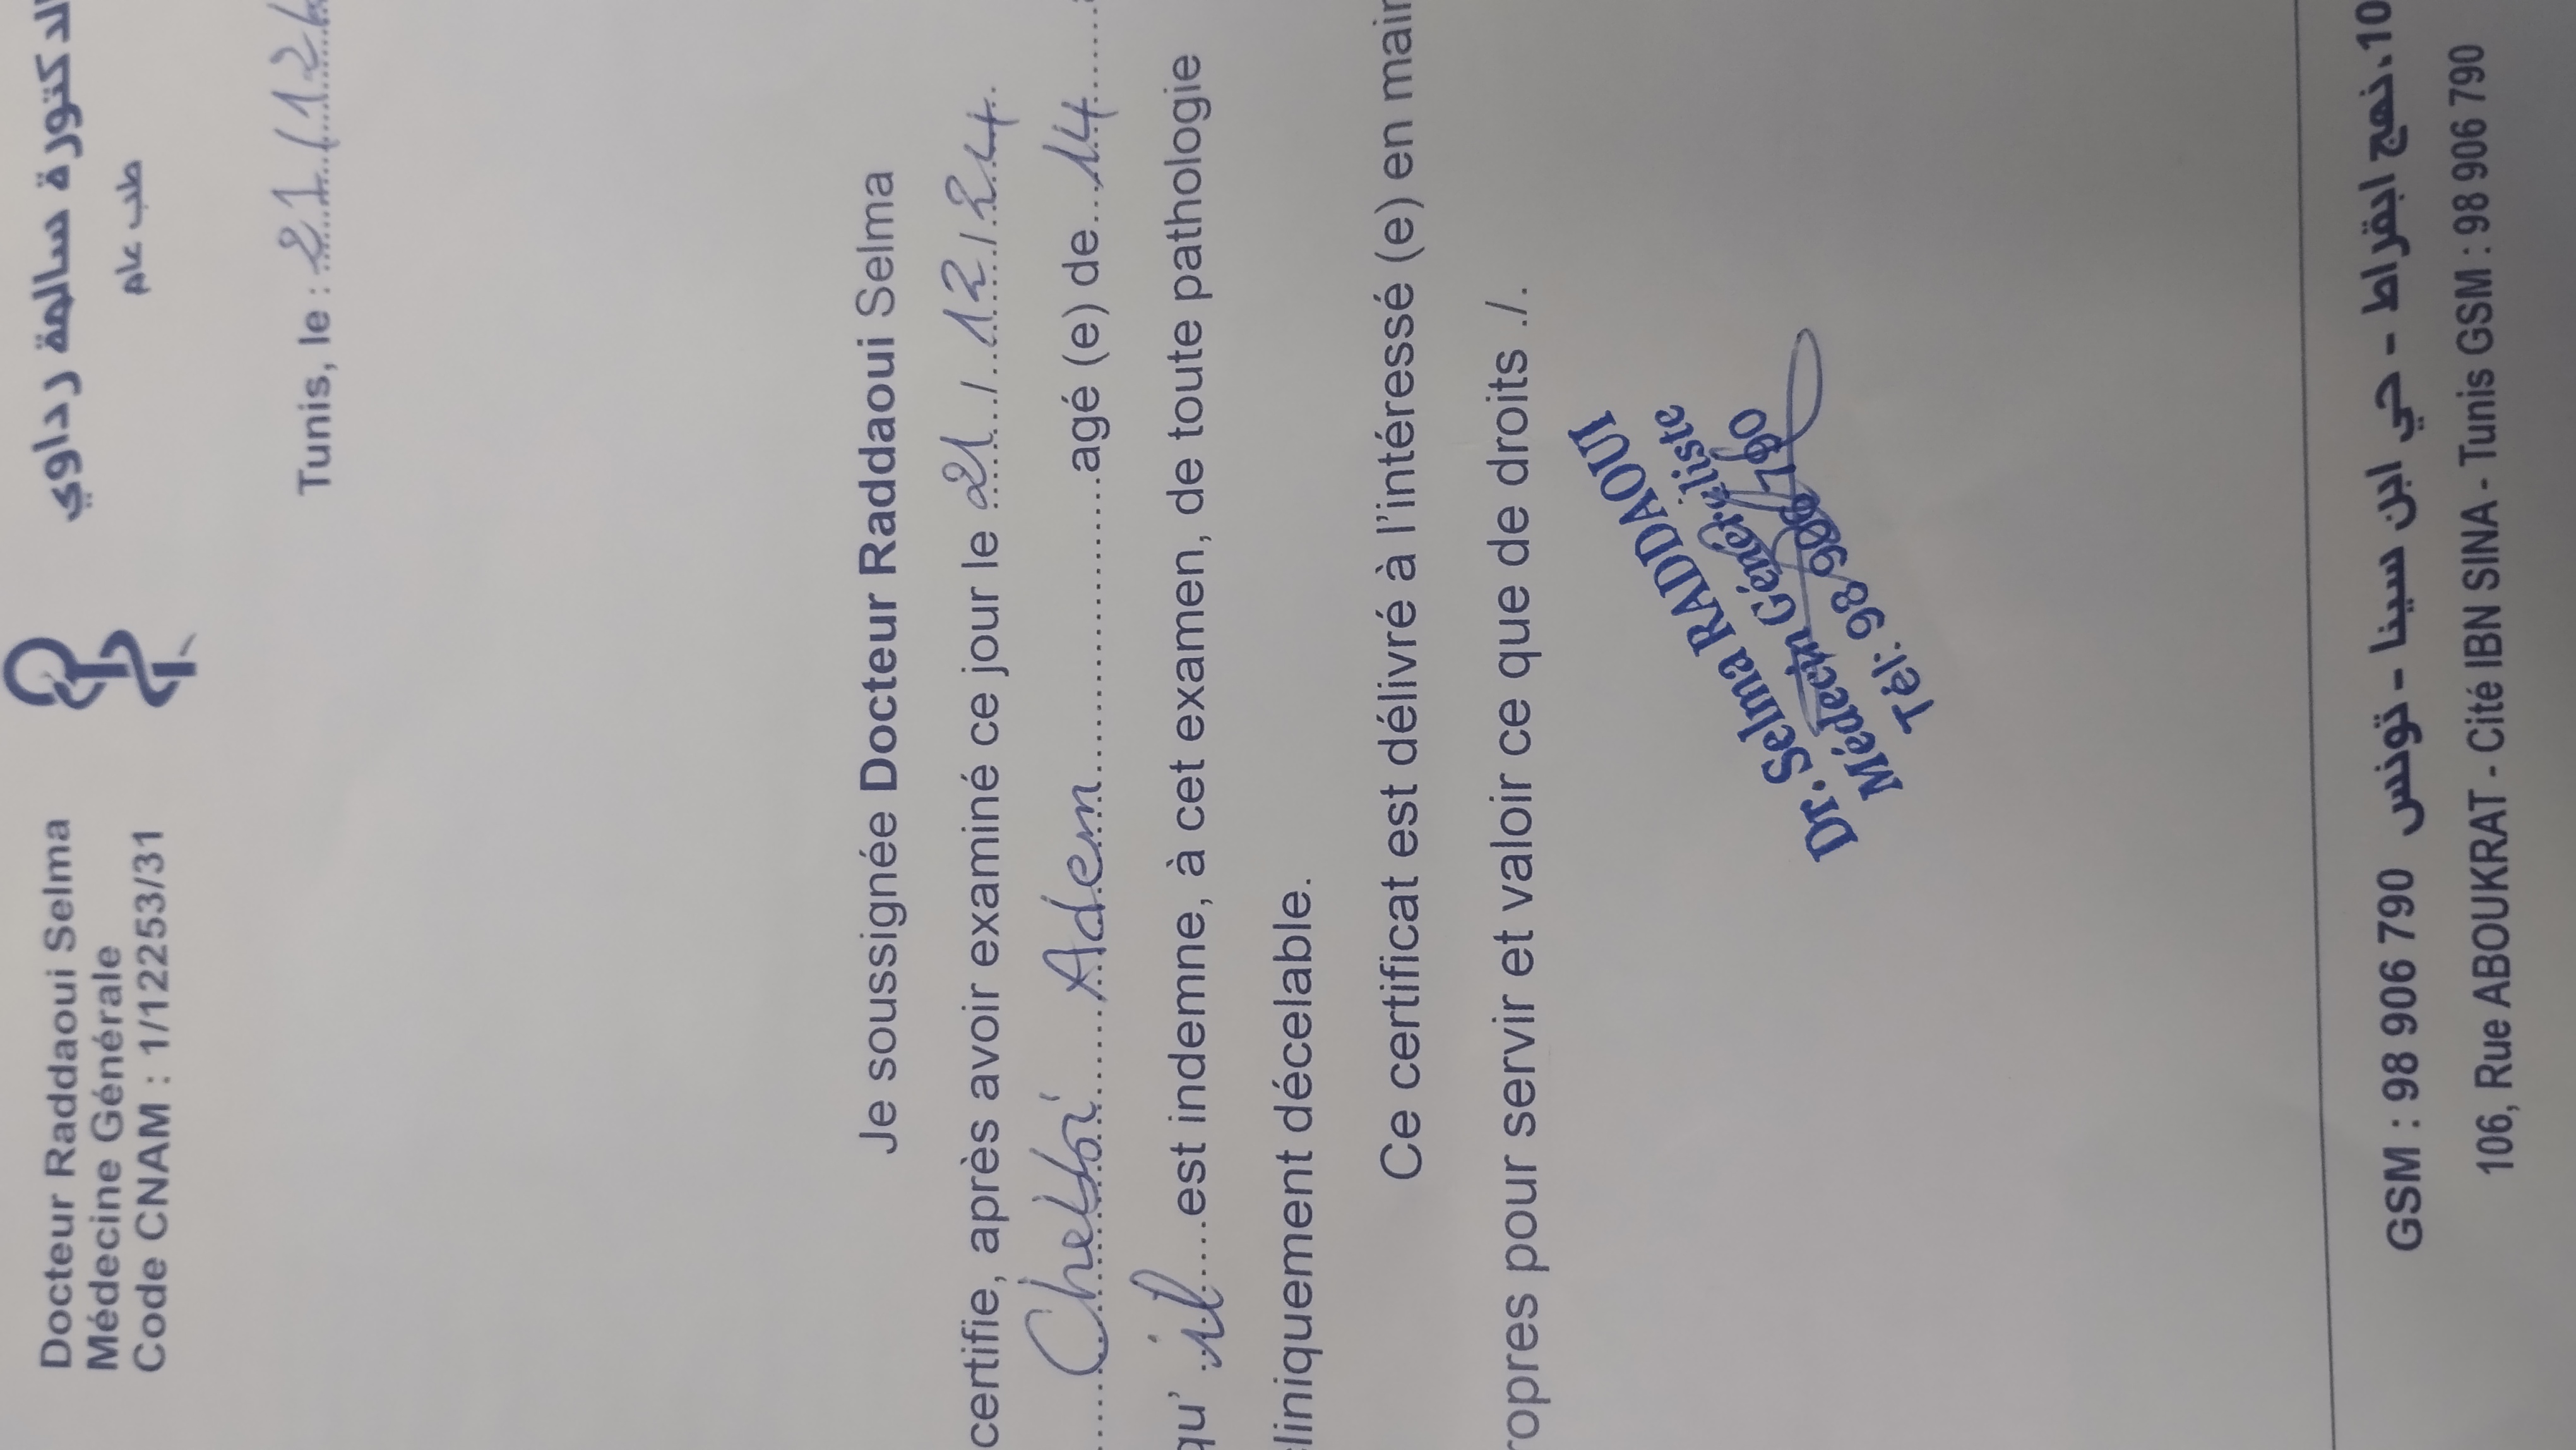 Docteur Raddaoui Selma
Médecine Générale
Code CNAM : 1/12253/31
الدكتورة سالمة رداوي
طب عام
Tunis, le : 21/12/
Je soussignée Docteur Raddaoui Selma
certifie, après avoir examiné ce jour le 21/12/24
Chebbi Adem agé (e) de 14
qu' il est indemne, à cet examen, de toute pathologie
cliniquement décelable.
Ce certificat est délivré à l'intéressé (e) en main
ropres pour servir et valoir ce que de droits ./.
Dr. Selma RADDAOUI
Médecin Généraliste
Tél: 98 906 790
10، نهج ابقراط - حي ابن سينا - تونس GSM : 98 906 790
106, Rue ABOUKRAT - Cité IBN SINA - Tunis GSM : 98 906 790